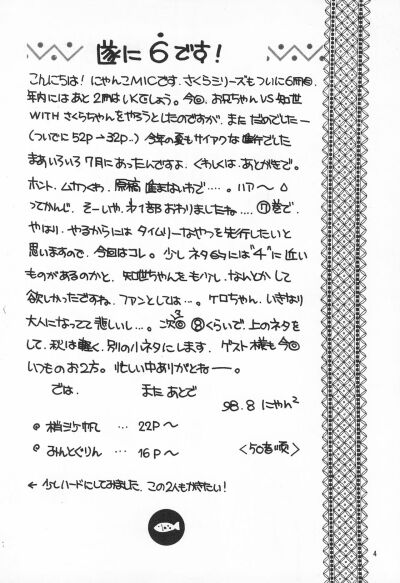 遂に6です!
こんにちは!にゃんこMICです.さくらシリーズもついに6冊目.
年内にはあと2冊はいくでしょう。今回、お兄ちゃんVS知世
WITHさくらちゃんをやろうとしたのですが、まただめでしたー
(ついでに52P→32P..)今年の夏もサイアクな進行でした
まあいろいろ7月にあったんですよ.くわしくは.あとがきで。
ホント.ムカつくわ.原稿進まないわで‥‥。ハア〜
ってかんじ.そーいや.ネイ部おわりましたね‥‥⑰巻で.
やはり.やるからにはタイムリーなやつを先行したいと
思いますので.今回はコレ。少しネタ的には"4"に近い
ものがあるのかと.知世ちゃんをも少し.なんとかして
欲しかったですね.ファンとしては‥‥。ケロちゃん.いきなり
大人になってて悲しいし‥。次回⑧くらいで.上のネタを
して.秋は軽く.別の小ネタにします.ゲスト様も今回
いつものお2方。忙しい中ありがとねー。
では. またあとで
98.8 にゃん²
梢ミケ帆 … 22P〜
みんとぐりん … 16P〜
<50音順>
← 少しハードにしてみました.この2人もかきたい!
4